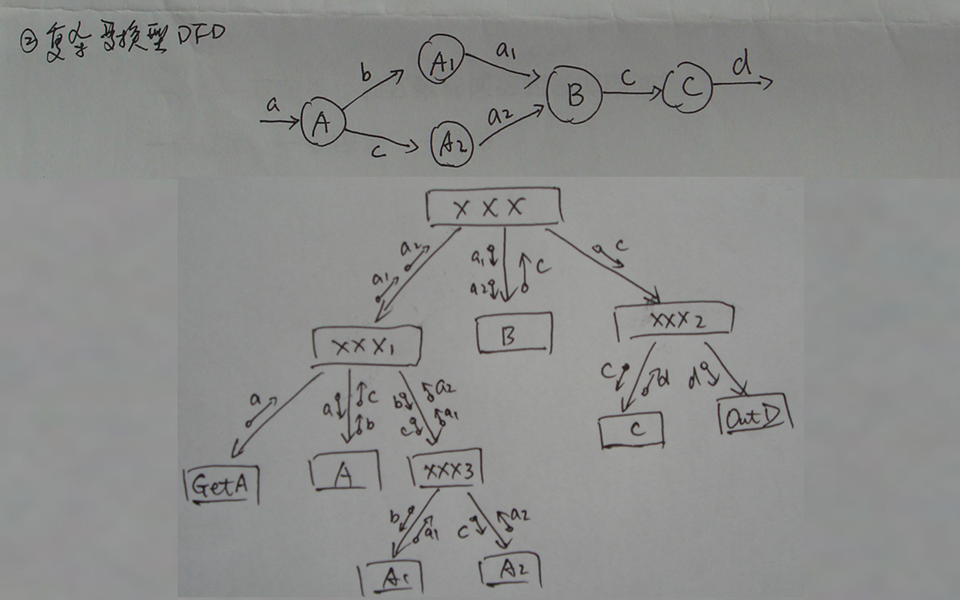 ②复杂变换型DFD
a A b A1 a1 B c C d
c A2 a2
XXX
a1 a2 a1 a2 c c
XXX1 B XXX2
a a c b b c a2 a1 c d d
GetA A XXX3 C OutD
b a1 c a2
A1 A2